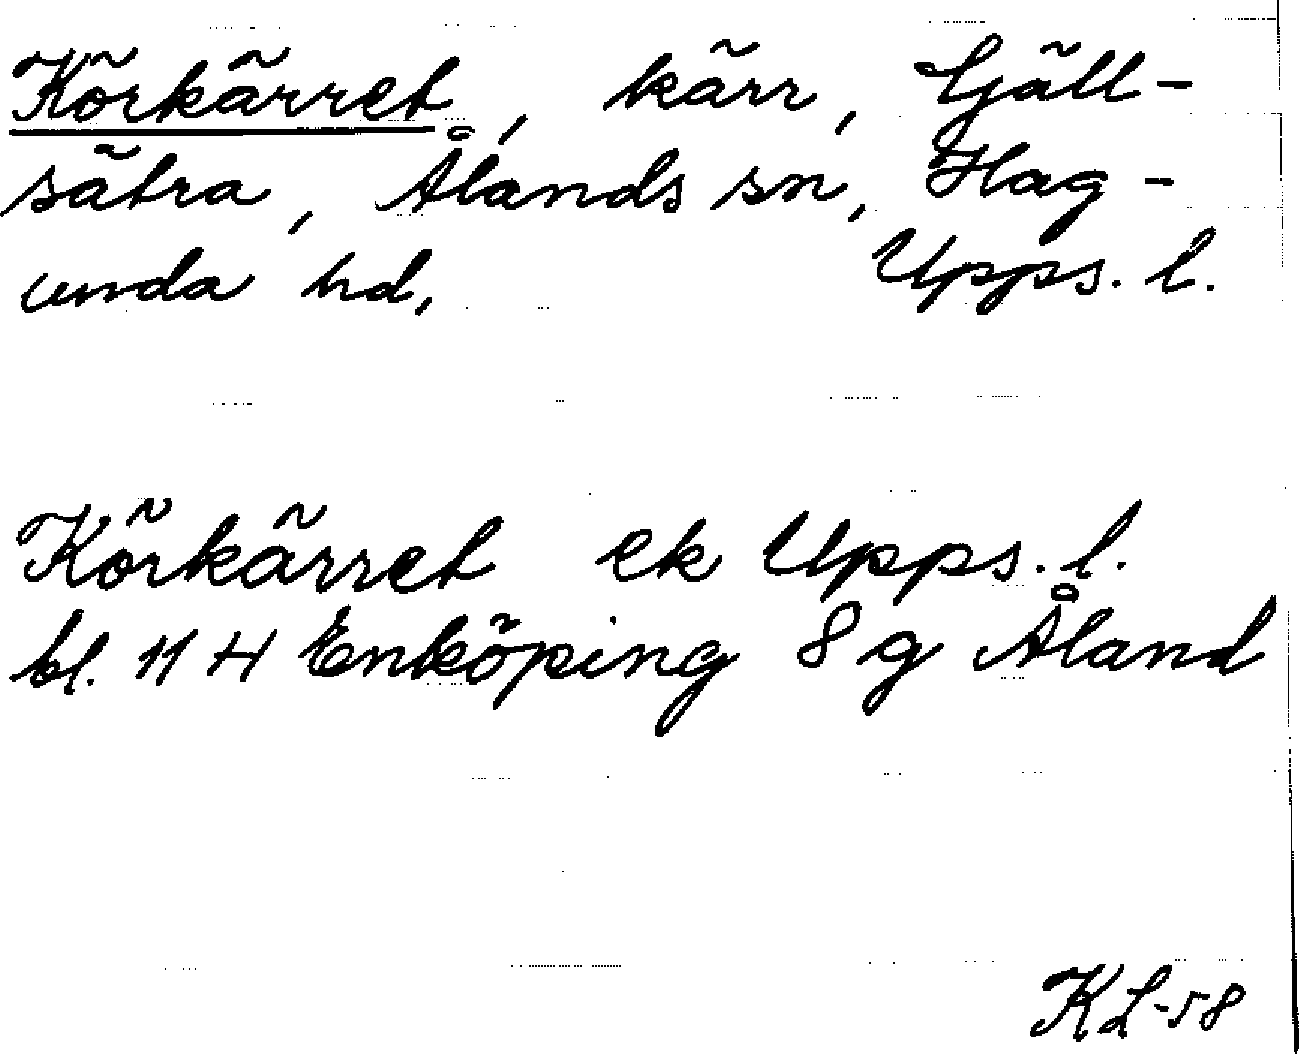 Körkärret, kärr, Gjäll-
sätra, Ålands sn, Hag-
unda hd, Upps. l.
Körkärret ek Upps. l.
bl. 11 H Enköping 8 g Åland
KL-58